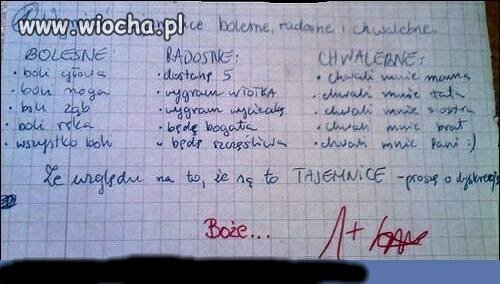 www.wiocha.pl
tajemnice bolesne, radosne i chwalebne.
BOLESNE: RADOSNE: CHWALEBNE:
• boli głowa • dostanę 5 • chwali mnie mama
• boli noga • wygram WIOTKA • chwali mnie tata
• boli ząb • wygram wycieczkę • chwali mnie siostra
• boli ręka • będę bogata • chwali mnie brat
• wszystko boli • będę szczęśliwa • chwali mnie Pani :)
Ze względu na to, że są to TAJEMNICE - proszę o dyskrecję
Boże... 1+